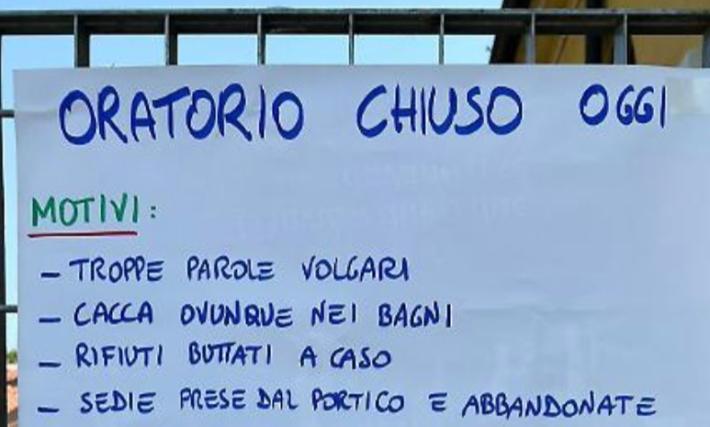 ORATORIO CHIUSO OGGI
MOTIVI:
- TROPPE PAROLE VOLGARI
- CACCA OVUNQUE NEI BAGNI
- RIFIUTI BUTTATI A CASO
- SEDIE PRESE DAL PORTICO E ABBANDONATE